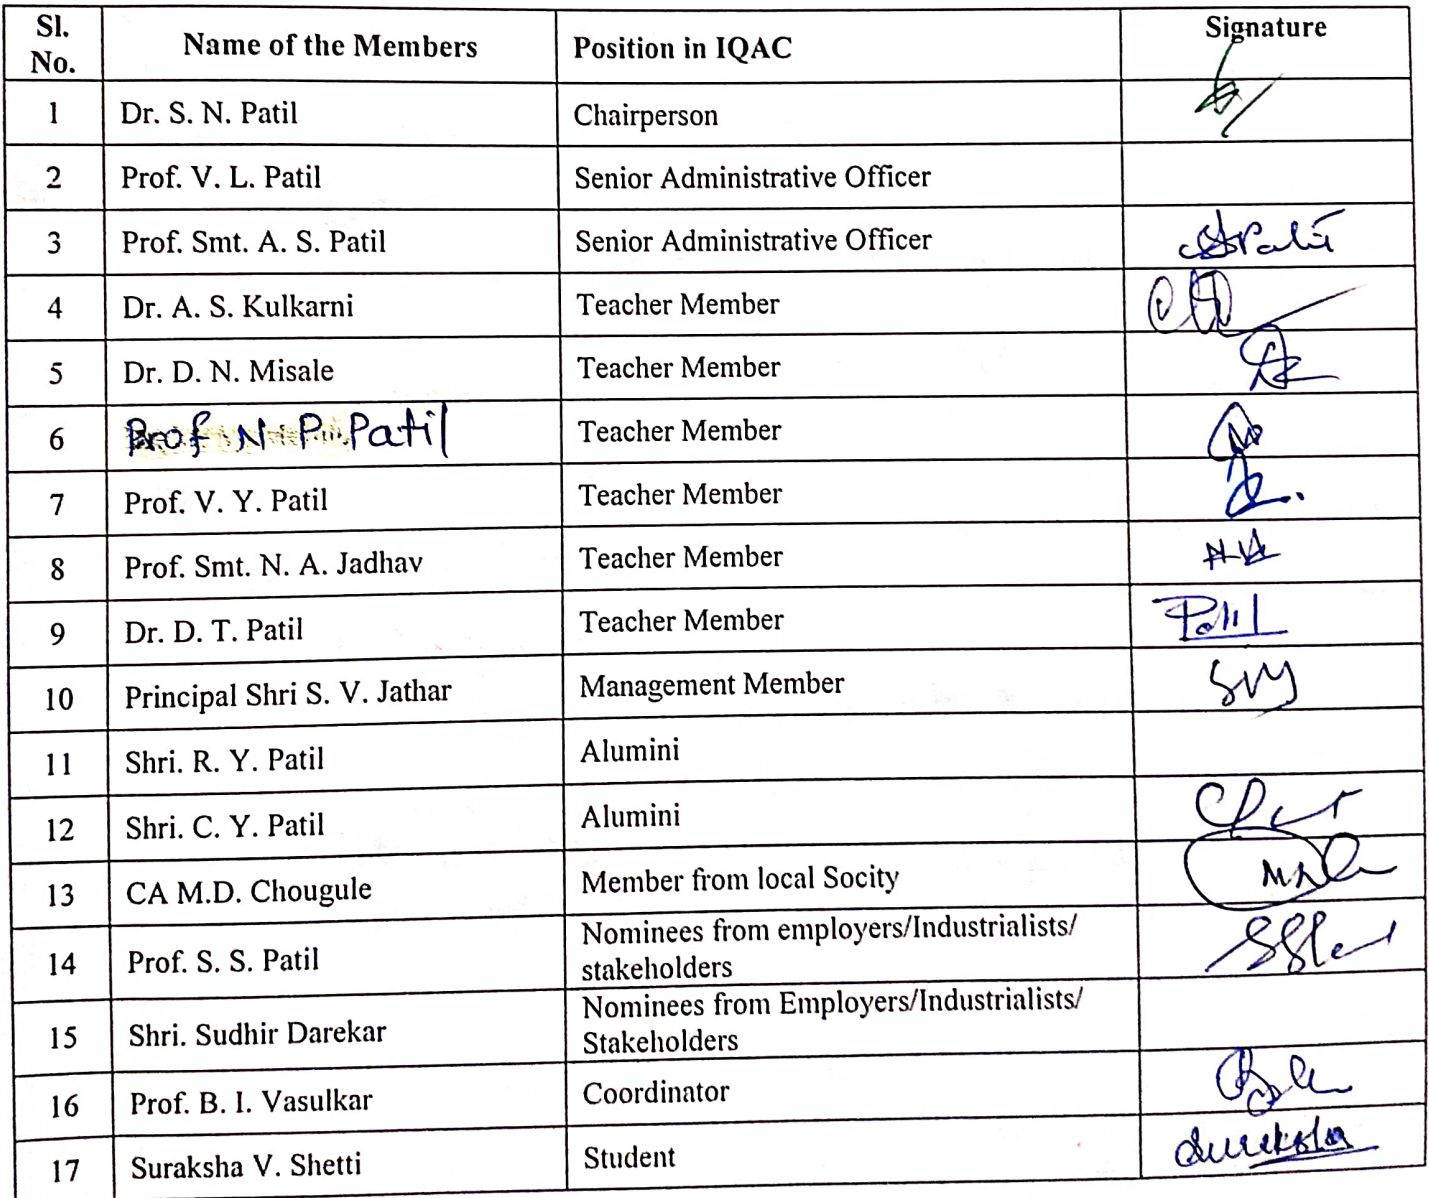 Sl. No. Name of the Members Position in IQAC Signature
1 Dr. S. N. Patil Chairperson
2 Prof. V. L. Patil Senior Administrative Officer
3 Prof. Smt. A. S. Patil Senior Administrative Officer
4 Dr. A. S. Kulkarni Teacher Member
5 Dr. D. N. Misale Teacher Member
6 Prof. N. P. Patil Teacher Member
7 Prof. V. Y. Patil Teacher Member
8 Prof. Smt. N. A. Jadhav Teacher Member
9 Dr. D. T. Patil Teacher Member Patil
10 Principal Shri S. V. Jathar Management Member
11 Shri. R. Y. Patil Alumini
12 Shri. C. Y. Patil Alumini
13 CA M.D. Chougule Member from local Socity
14 Prof. S. S. Patil Nominees from employers/Industrialists/
stakeholders
15 Shri. Sudhir Darekar Nominees from Employers/Industrialists/
Stakeholders
16 Prof. B. I. Vasulkar Coordinator
17 Suraksha V. Shetti Student Suraksha